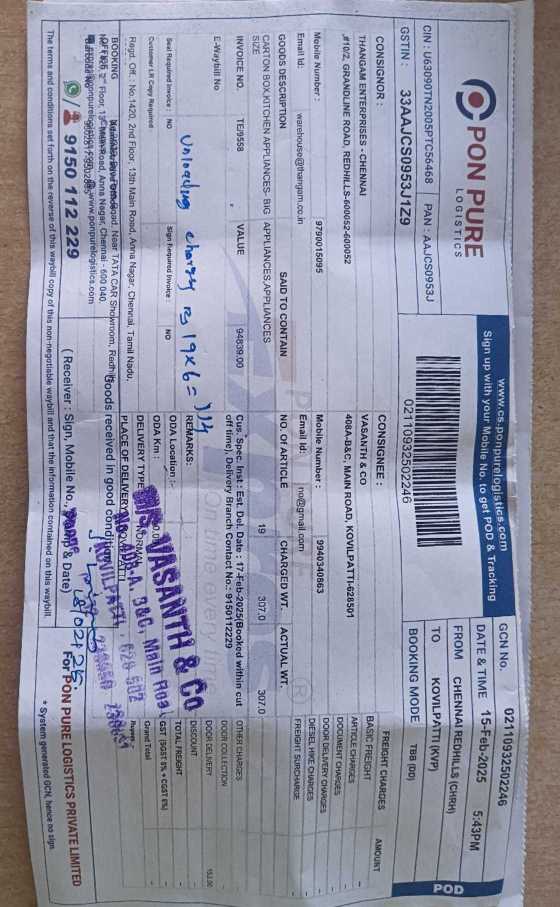 PON PURE
LOGISTICS
CIN : U63090TN2005PTC56468 PAN : AAJCS0953J
GSTIN : 33AAJCS0953J1Z9
www.cs.ponpurelogistics.com
Sign up with your Mobile No. to get POD & Tracking
02110932502246
POD
GCN No. 02110932502246
DATE & TIME 15-Feb-2025 5:43PM
FROM CHENNAI REDHILLS (CHRH)
TO KOVILPATTI (KVP)
BOOKING MODE TBB (DD)
CONSIGNOR :
THANGAM ENTERPRISES - CHENNAI
,#10/2, GRANDLINE ROAD, REDHILLS-600052-600052
Mobile Number : 9790015095
Email Id: warehouse@thangam.co.in
CONSIGNEE :
VASANTH & CO
408A-B&C, MAIN ROAD, KOVILPATTI-628501
Mobile Number : 9940340663
Email Id: no@gmail.com
GOODS DESCRIPTION SAID TO CONTAIN NO. OF ARTICLE CHARGED WT. ACTUAL WT.
CARTON BOX,KITCHEN APPLIANCES- BIG SIZE APPLIANCES,APPLIANCES 19 307.0 307.0
INVOICE NO. TE/9558 VALUE 94839.00
E-Waybill No
Cus. Spec Inst : Est. Del. Date : 17-Feb-2025(Booked within cut off time), Delivery Branch Contact No.: 9150112229
FREIGHT CHARGES AMOUNT
BASIC FREIGHT -
ARTICLE CHARGES -
DOCUMENT CHARGES -
DOOR DELIVERY CHARGES -
DIESEL HIKE CHARGES -
FREIGHT SURCHARGE -
OTHER CHARGES -
DOOR COLLECTION -
DOOR DELIVERY 153.00
DISCOUNT
TOTAL FREIGHT -
GST (SGST 6% + CGST 6%) -
Grand Total -
Rupees -
Unloading charge Rs 19x6=114
Seal Required Invoice : NO Sign Required Invoice : NO
Customer LR Copy Required
REMARKS:
ODA Location :-
ODA Km :
DELIVERY TYPE NORMAL
PLACE OF DELIVERY KOVILPATTI
M/S. VASANTH & Co
No. 408-A. B&C, Main Road
KOVILPATTI, 628 502
Regd. Off. : No.1420, 2nd Floor, 13th Main Road, Anna Nagar, Chennai, Tamil Nadu,
BOOKING OFFICE
Road, Near TATA CAR Showroom, Redhills
2nd Floor, 13th Main Road, Anna Nagar, Chennai - 600 040.
www.ponpurelogistics.com
9150 112 229
Goods received in good condition
18/02/25.
( Receiver : Sign, Mobile No., Stamp & Date)
For PON PURE LOGISTICS PRIVATE LIMITED
The terms and conditions set forth on the reverse of this waybill copy of this non-negotiable waybill and that the information contained on this waybill.
* System generated GCN, hence no sign.